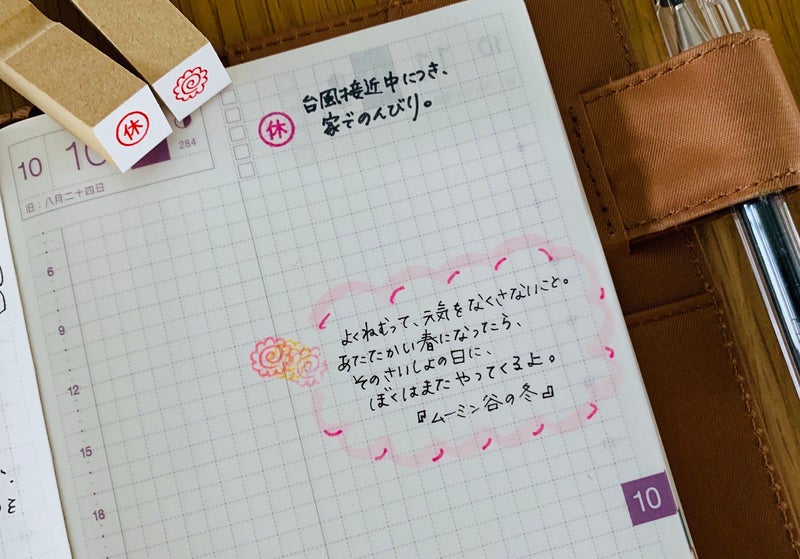 休
休
台風接近中につき、
家でのんびり。
10 10
284
旧：八月二十四日
6
9
12
15
18
よくねむって、元気をなくさないこと。
あたたかい春になったら、
そのさいしょの日に、
ぼくはまたやってくるよ。
『ムーミン谷の冬』
10